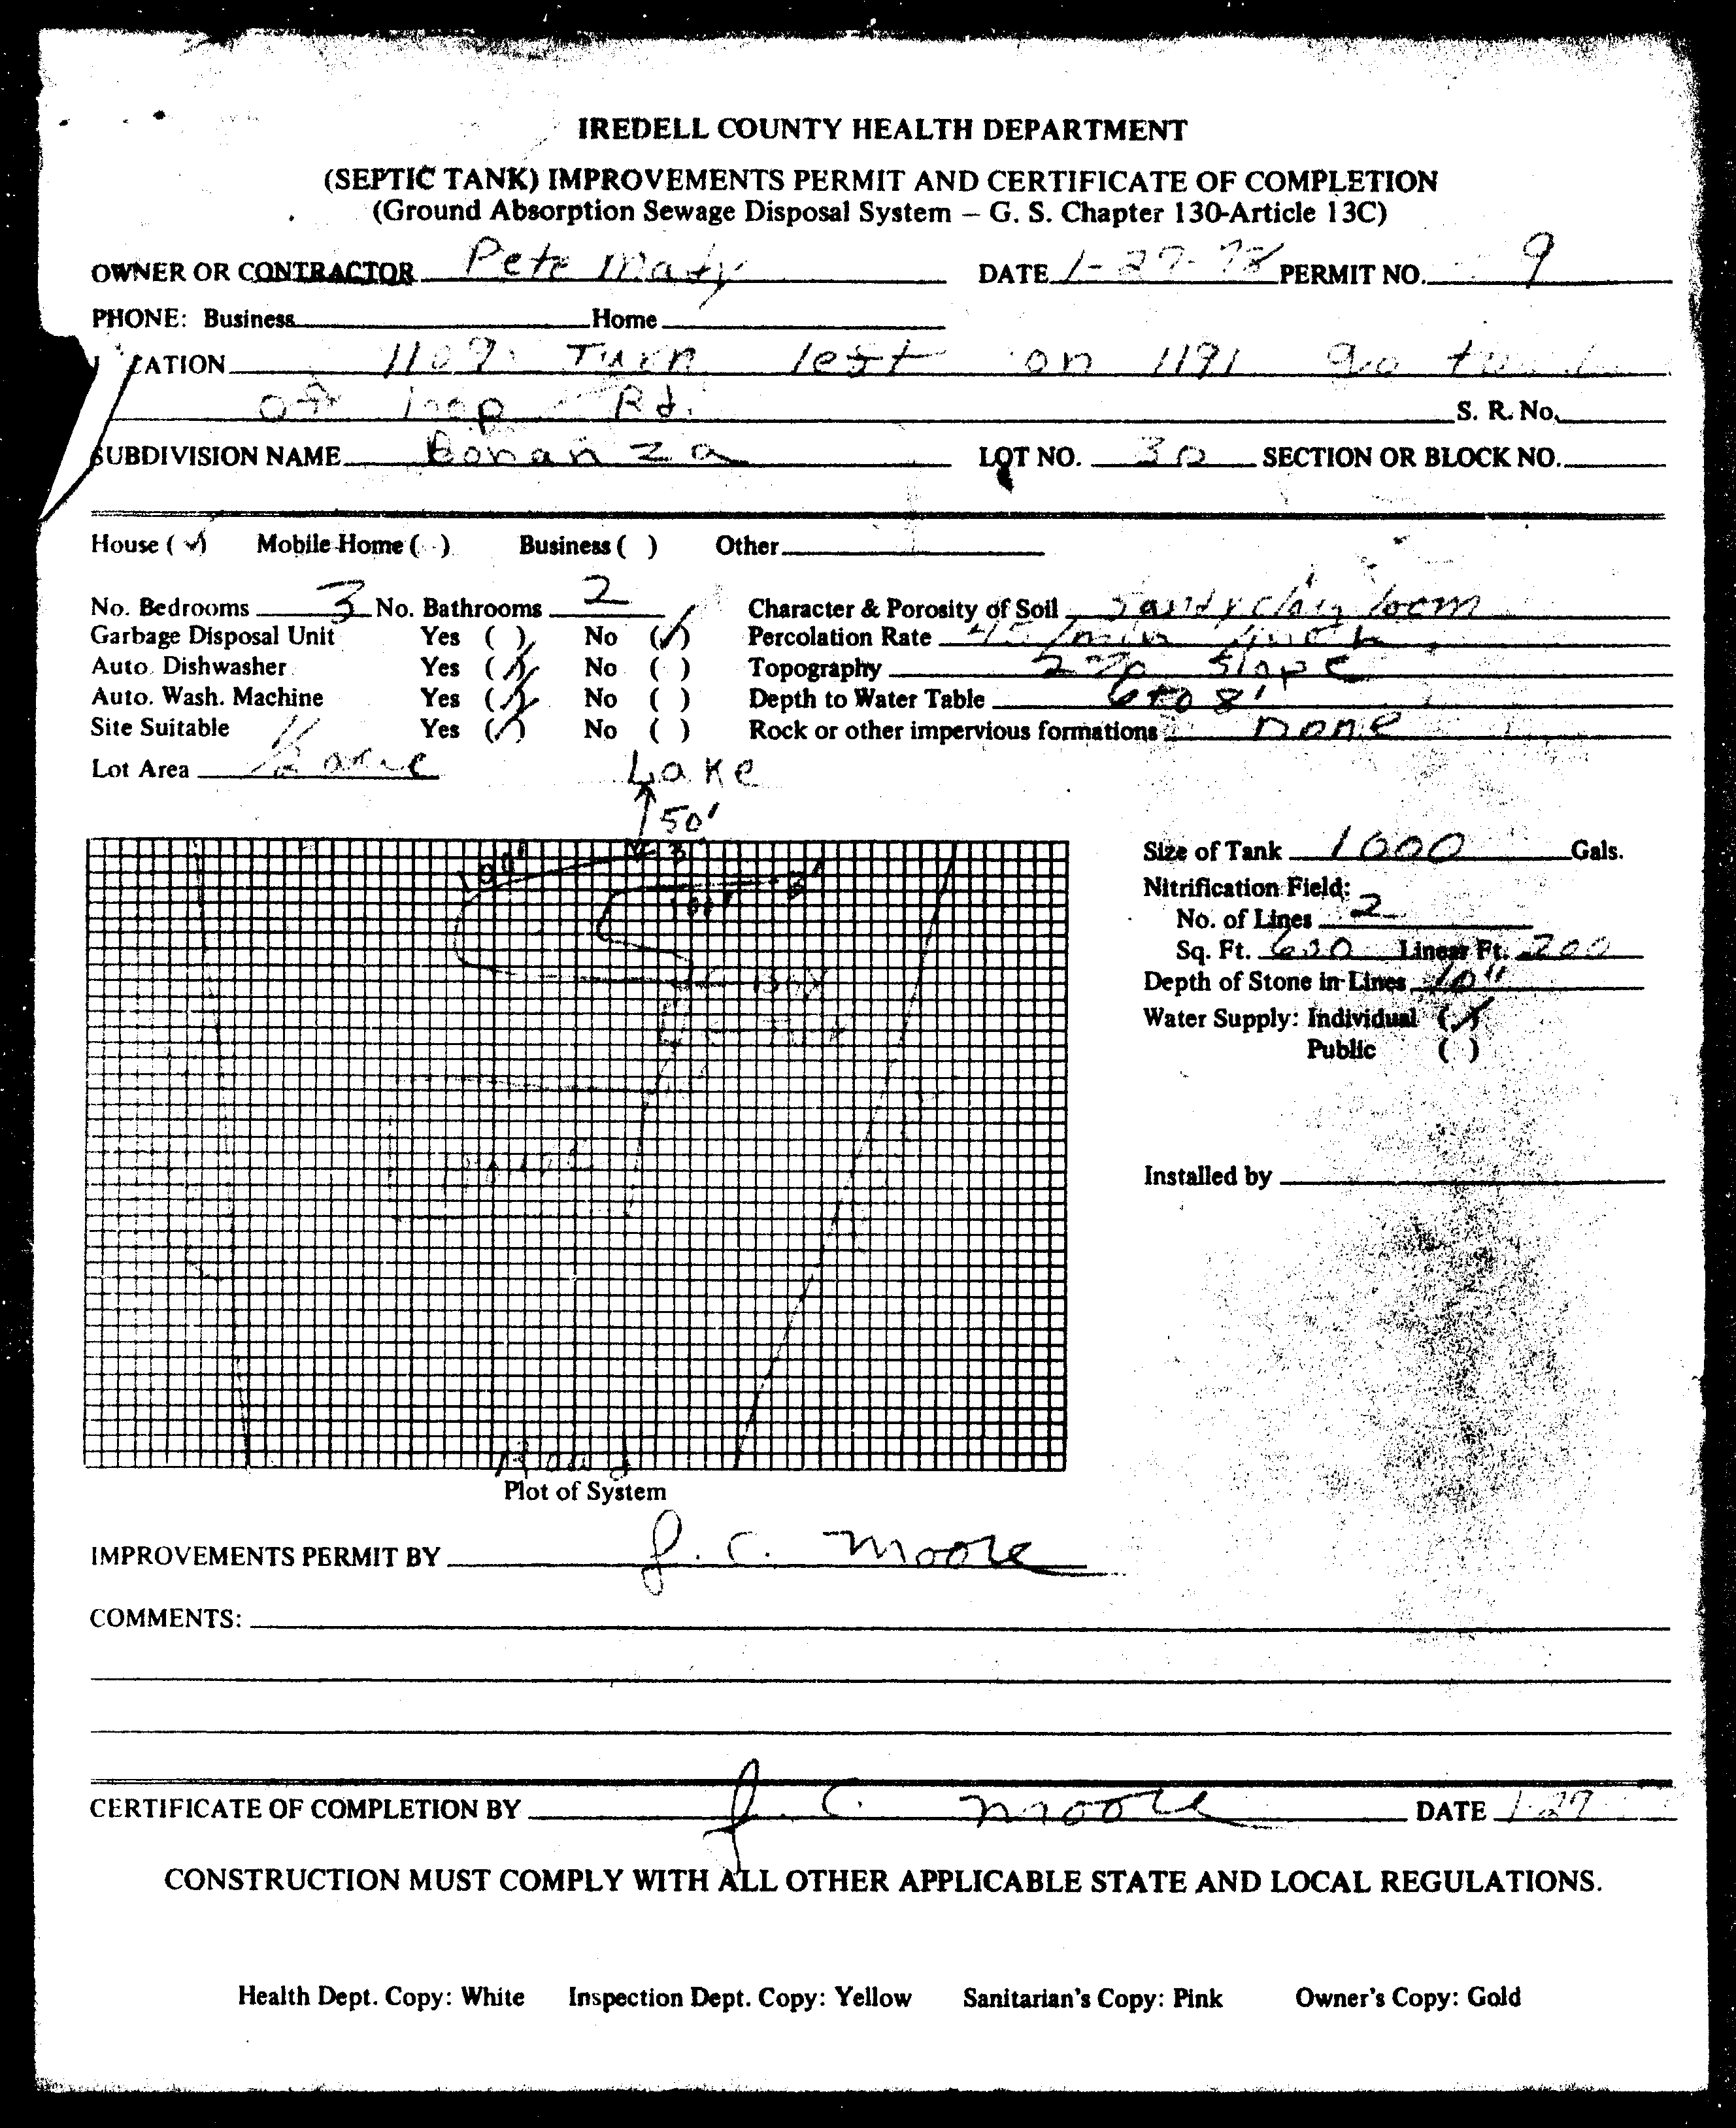 IREDELL COUNTY HEALTH DEPARTMENT
(SEPTIC TANK) IMPROVEMENTS PERMIT AND CERTIFICATE OF COMPLETION
(Ground Absorption Sewage Disposal System – G. S. Chapter 130-Article 13C)
OWNER OR CONTRACTOR Pete DATE 1-27-78 PERMIT NO. 9
PHONE: Business Home
CATION 1109 Turn left on 1191 go
off loop Rd. S. R. No.
SUBDIVISION NAME Bonanza LOT NO. 30 SECTION OR BLOCK NO.
House (✓) Mobile Home ( ) Business ( ) Other
No. Bedrooms 3 No. Bathrooms 2 Character & Porosity of Soil Sandy clay loem
Garbage Disposal Unit Yes ( ) No (✓) Percolation Rate 45/min/inch
Auto. Dishwasher Yes (✓) No ( ) Topography 2% Slope
Auto. Wash. Machine Yes (✓) No ( ) Depth to Water Table 6 to 8'
Site Suitable Yes (✓) No ( ) Rock or other impervious formations none
Lot Area 1/2 acre Lake
50'
100' 3'
100' 3'
Box
House
Road
Size of Tank 1000 Gals.
Nitrification Field:
No. of Lines 2
Sq. Ft. 600 Linear Ft. 200
Depth of Stone in Lines 10"
Water Supply: Individual (✓)
Public ( )
Installed by
Plot of System
IMPROVEMENTS PERMIT BY J. C. Moore
COMMENTS:
CERTIFICATE OF COMPLETION BY J. C. Moore DATE 1-27
CONSTRUCTION MUST COMPLY WITH ALL OTHER APPLICABLE STATE AND LOCAL REGULATIONS.
Health Dept. Copy: White Inspection Dept. Copy: Yellow Sanitarian's Copy: Pink Owner's Copy: Gold